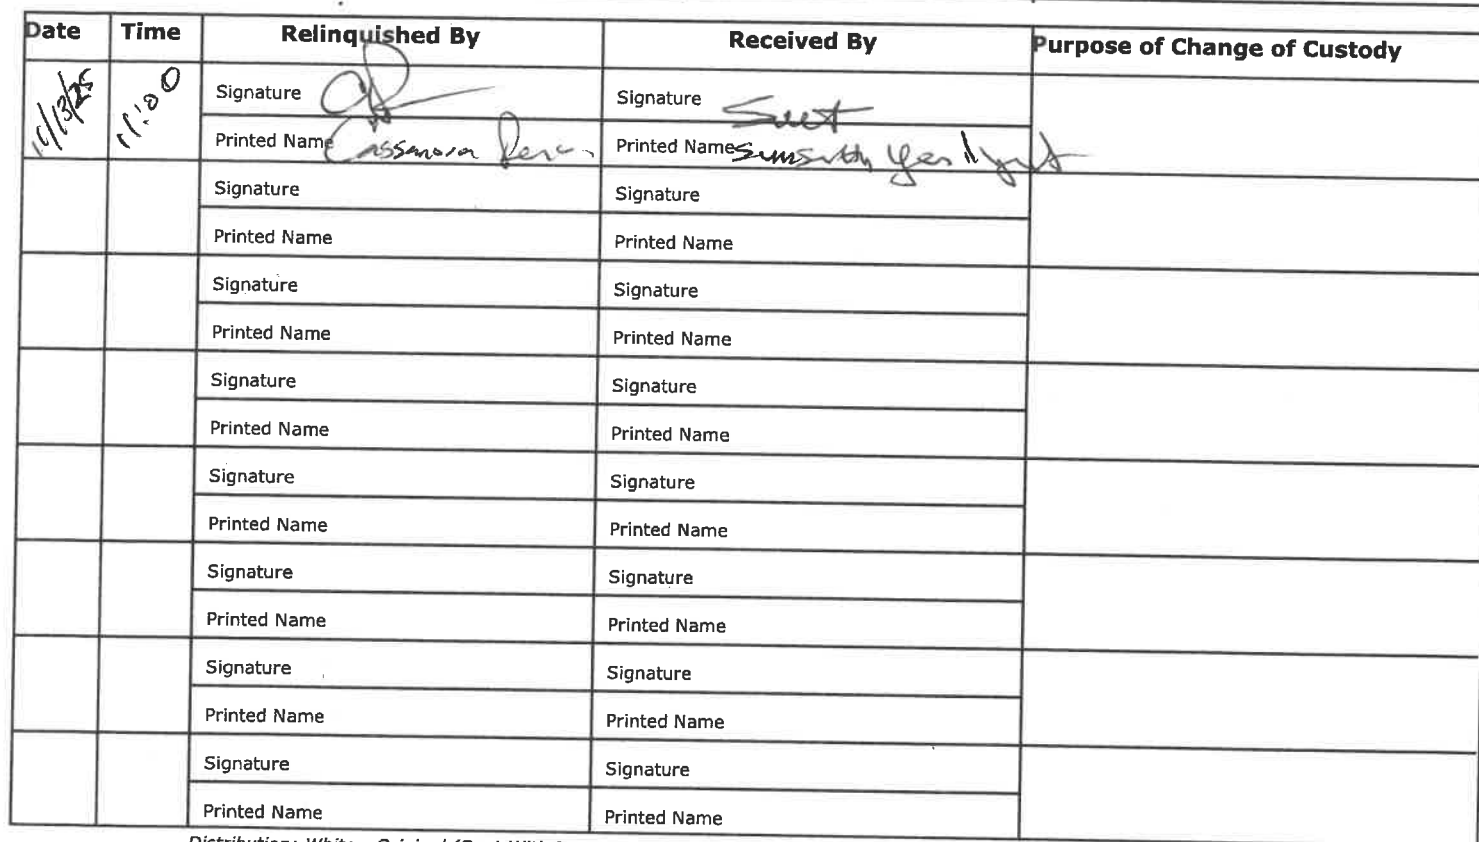 Date Time Relinquished By Received By Purpose of Change of Custody
11:00
Signature Signature
Printed Name Printed Name
Signature Signature
Printed Name Printed Name
Signature Signature
Printed Name Printed Name
Signature Signature
Printed Name Printed Name
Signature Signature
Printed Name Printed Name
Signature Signature
Printed Name Printed Name
Signature Signature
Printed Name Printed Name
Signature Signature
Printed Name Printed Name